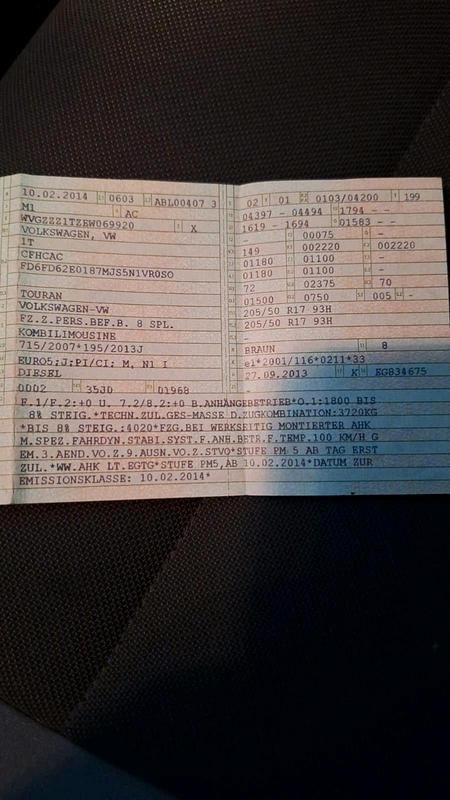 10.02.2014 0603 ABL00407 3
M1 AC
WVGZZZ1TZEW069920 X
VOLKSWAGEN, VW
1T
CFHCAC
FD6FD62E0187MJS5N1VR0SO
TOURAN
VOLKSWAGEN-VW
FZ.Z.PERS.BEF.B. 8 SPL.
KOMBILIMOUSINE
715/2007*195/2013J
EURO5;J;PI/CI; M, N1 I
DIESEL
0002 35J0 01968
02 01 0103/04200 199
04397 - 04494 1794 - -
1619 - 1694 01583 - -
- 00075 -
149 002220 002220
01180 01100 -
01180 01100 -
72 02375 70
01500 0750 005 -
205/50 R17 93H
205/50 R17 93H
-
BRAUN 8
e1*2001/116*0211*33
27.09.2013 K EG834675
-
F.1/F.2:+0 U. 7.2/8.2:+0 B.ANHÄNGEBETRIEB*O.1:1800 BIS
8% STEIG.*TECHN.ZUL.GES-MASSE D.ZUGKOMBINATION:3720KG
*BIS 8% STEIG.:4020*FZG.BEI WERKSEITIG MONTIERTER AHK
M.SPEZ.FAHRDYN.STABI.SYST.F.ANH.BETR.F.TEMP.100 KM/H G
EM.3.AEND.VO.Z.9.AUSN.VO.Z.STVO*STUFE PM 5 AB TAG ERST
ZUL.*WW.AHK LT.EGTG*STUFE PM5,AB 10.02.2014*DATUM ZUR
EMISSIONSKLASSE: 10.02.2014*